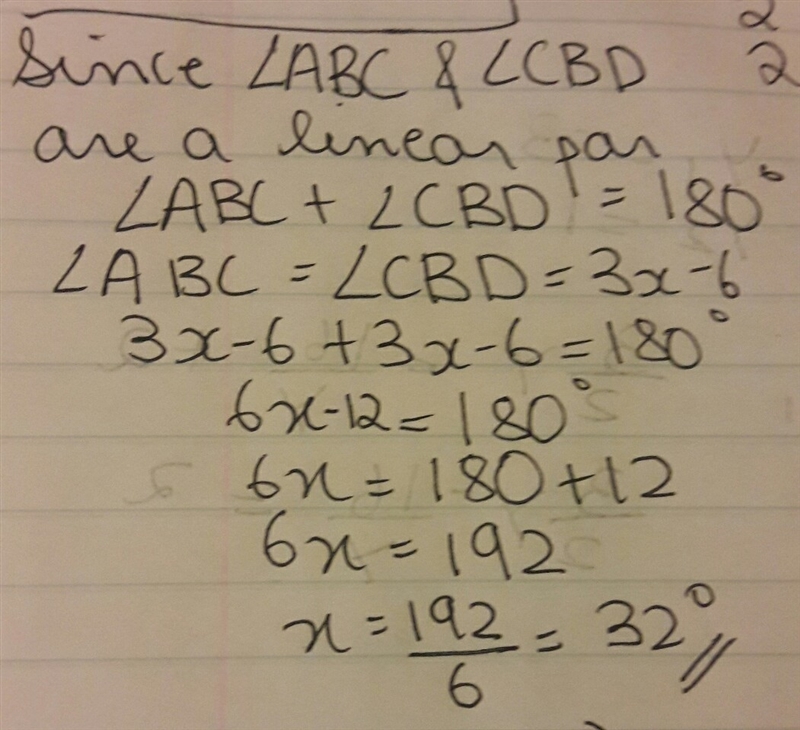 Since ∠ABC & ∠CBD
are a linear pair
∠ABC + ∠CBD = 180°
∠ABC = ∠CBD = 3x-6
3x-6+3x-6=180°
6x-12=180°
6x=180+12
6x=192
x=192/6=32°
2
2